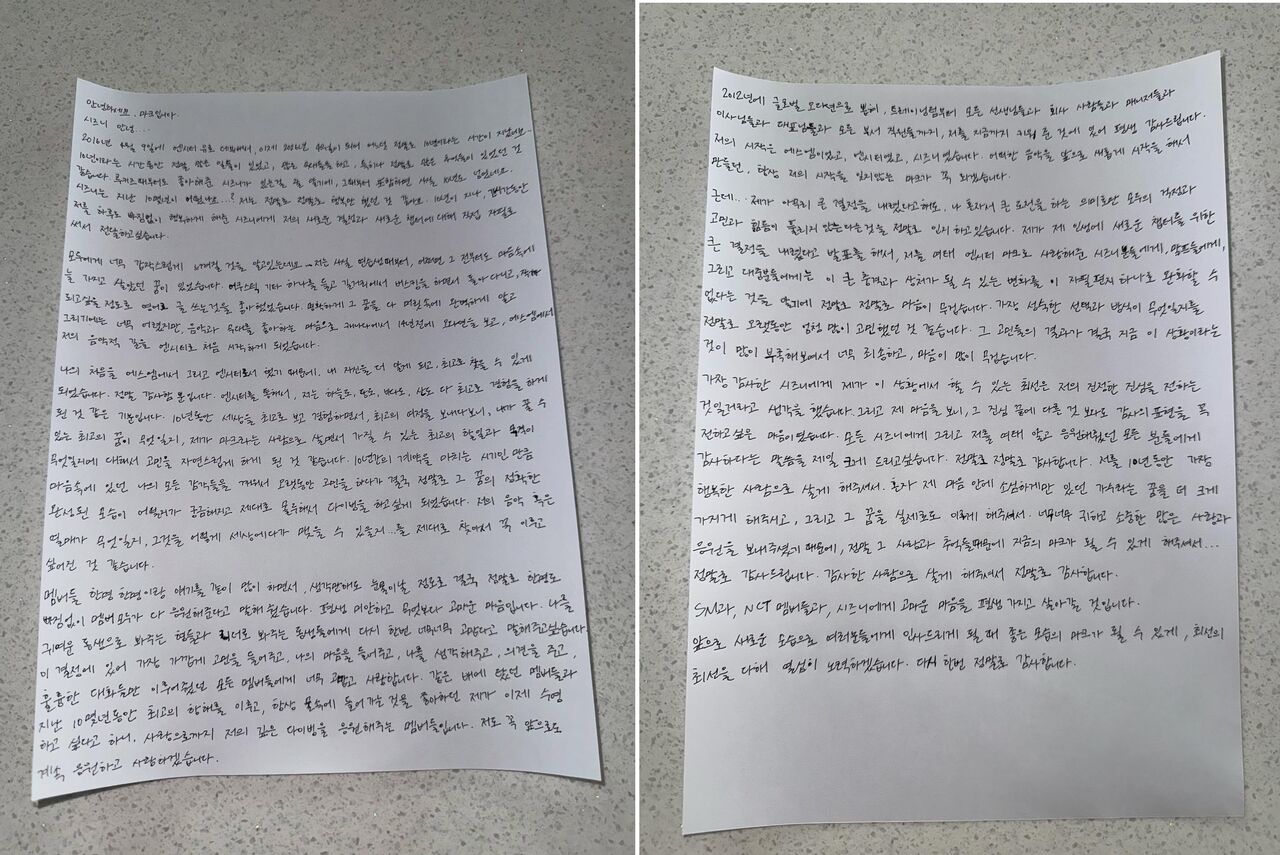 안녕하세요. 마크입니다.
시즈니 안녕...
2016년 4월 9일에 엔시티 유로 데뷔해서, 이제 2026년 4월이 되어 어느덧 정말로 10년이라는 시간이 지났어요..
10년이라는 시간동안 정말 많은 일들이 있었고, 많은 무대들을 하고, 특히나 정말로 많은 추억들이 있었던 것
같습니다. 루키즈때부터도 좋아해준 시즈니가 있는걸 잘 알기에, 그때부터 포함하면 사실 10년도 넘었네요.
시즈니는 지난 10년이 어땠나요...? 저는 정말로 정말로 행복만 했던 것 같아요. 10년이 지나, 긴시간동안
저를 하루도 빠짐없이 행복하게 해준 시즈니에게 저의 새로운 결정과 새로운 챕터에 대해 직접 자필로
써서 전달하고싶습니다.
모두에게 너무 갑작스럽게 느껴질 것을 알고있는데요... 저는 사실 연습생때부터, 어쩌면 그 전부터도 마음속에
늘 가지고 살았던 꿈이 있었습니다. 어쿠스틱 기타 하나를 들고 길거리에서 버스킹을 하면서 돌아다니고, 작가
되고싶을 정도로 영어로 글 쓰는것을 좋아했었습니다. 명확하게 그 꿈을 다 머릿속에 완벽하게 알고
그리기에는 너무 어렸지만 음악과 무대를 좋아하는 마음으로 캐나다에서 14년전에 오디션을 보고, 에스엠에서
저의 음악적 길을 엔시티로 처음 시작하게 되었습니다.
나의 처음을 에스엠에서 그리고 엔시티로서 했기 때문에, 내 자신을 더 알게 되고, 최고로 찾을 수 있게
되었습니다. 정말 감사할 뿐입니다. 엔시티를 통해서, 저는 하늘도, 땅도, 바다도, 산도 다 최고로 경험을 하게
된 것 같은 기분입니다. 10년동안 세상을 최고로 보고 경험하면서, 최고의 여정을 보내다보니, 내가 꿀 수
있는 최고의 꿈이 무엇일지, 제가 마크라는 사람으로 살면서 가질 수 있는 최고의 할일과 목적이
무엇일지에 대해서 고민을 자연스럽게 하게 된 것 같습니다. 10년간의 계약을 마치는 시기인 만큼
마음속에 있던 나의 모든 감각들을 깨워서 오랫동안 고민을 하다가 결국 정말로 그 꿈의 정확한
완성된 모습이 어떨지가 궁금해지고 제대로 몰두해서 다이빙을 하고싶게 되었습니다. 저의 음악 혹은
열매가 무엇일지, 그것을 어떻게 세상에다가 맺을 수 있을지...를 제대로 찾아서 꼭 이루고
싶어진 것 같습니다.
멤버들 한명 한명이랑 얘기를 같이 많이 하면서, 생각만해도 눈물이날 정도로 결국 정말로 한명도
빠짐없이 멤버 모두가 다 응원해준다고 말해줬습니다. 평생 미안하고 무엇보다 고마운 마음입니다. 나를
귀여운 동생으로 봐주는 형들과 리더로 봐주는 동생들에게 다시 한번 너무너무 고맙다고 말해주고싶습니다.
이 결정에 있어 가장 가깝게 고민을 들어주고, 나의 마음을 들어주고, 나를 생각해주고, 의견을 주고,
훌륭한 대화들만 이루어줬던 모든 멤버들에게 너무 고맙고 사랑합니다. 같은 배에 탔던 멤버들과
지난 10몇년동안 최고의 항해를 이루고, 항상 물속에 들어가는 것을 좋아하던 제가 이제 수영
하고 싶다고 하니, 사랑으로까지 저의 깊은 다이빙을 응원해주는 멤버들입니다. 저도 꼭 앞으로도
계속 응원하고 사랑하겠습니다.
2012년에 글로벌 오디션으로 뽑혀, 트레이닝팀부터 모든 선생님들과 회사 사람들과 매니저들과
이사님들과 대표님들과 모든 부서 직원들까지, 저를 지금까지 키워 준 것에 있어 평생 감사드립니다.
저의 시작은 에스엠이었고, 엔시티였고, 시즈니였습니다. 어떠한 음악을 앞으로 새롭게 시작을 해서
만들던, 항상 저의 시작을 잊지않는 마크가 꼭 되겠습니다.
근데... 제가 아무리 큰 결정을 내렸다고해도, 나 혼자서 큰 도전을 하는 의미로만 모두의 걱정과
고민과 힘듦이 풀리지 않는다는것을 정말로 인지하고있습니다. 제가 제 인생에 새로운 챕터를 위한
큰 결정을 내렸다고 발표를 해서, 저를 여태 엔시티 마크로 사랑해준 시즈니분들에게, 팬분들에게,
그리고 대중분들에게는 이 큰 충격과 상처가 될 수 있는 변화를 이 자필편지 하나로 완화할 수
없다는 것을 알기에 정말로 정말로 마음이 무겁습니다. 가장 성숙한 선택과 방식이 무엇일지를
정말로 오랫동안 엄청 많이 고민했던 것 같습니다. 그 고민들의 결과가 결국 지금 이 상황이라는
것이 많이 부족해보여서 너무 죄송하고, 마음이 많이 무겁습니다.
가장 감사한 시즈니에게 제가 이 상황에서 할 수 있는 최선은 저의 진정한 진심을 전하는
것일거라고 생각을 했습니다. 그리고 제 마음을 보니, 그 진심 끝에 다른 것 보다도 감사의 표현을 꼭
전하고싶은 마음이였습니다. 모든 시즈니에게 그리고 저를 여태 알고 응원해줬던 모든 분들에게
감사하다는 말씀을 제일 크게 드리고싶습니다. 정말로 정말로 감사합니다. 저를 10년동안 가장
행복한 사람으로 살게 해주셔서. 혼자 제 마음 안에 소심하게만 있던 가수라는 꿈을 더 크게
가지게 해주시고, 그리고 그 꿈을 실제로도 이루게 해주셔서. 너무너무 귀하고 소중한 많은 사랑과
응원을 보내주셨기 때문에, 정말 그 사랑과 추억들때문에 지금의 마크가 될 수 있게 해주셔서...
정말로 감사드립니다. 감사한 사람으로 살게 해주셔서 정말로 감사합니다.
SM과, NCT 멤버들과, 시즈니에게 고마운 마음을 평생 가지고 살아갈 것입니다.
앞으로 새로운 모습으로 여러분들에게 인사드리게 될 때 좋은 모습의 마크가 될 수 있게, 최선의
최선을 다해 열심히 노력하겠습니다. 다시 한번 정말로 감사합니다.